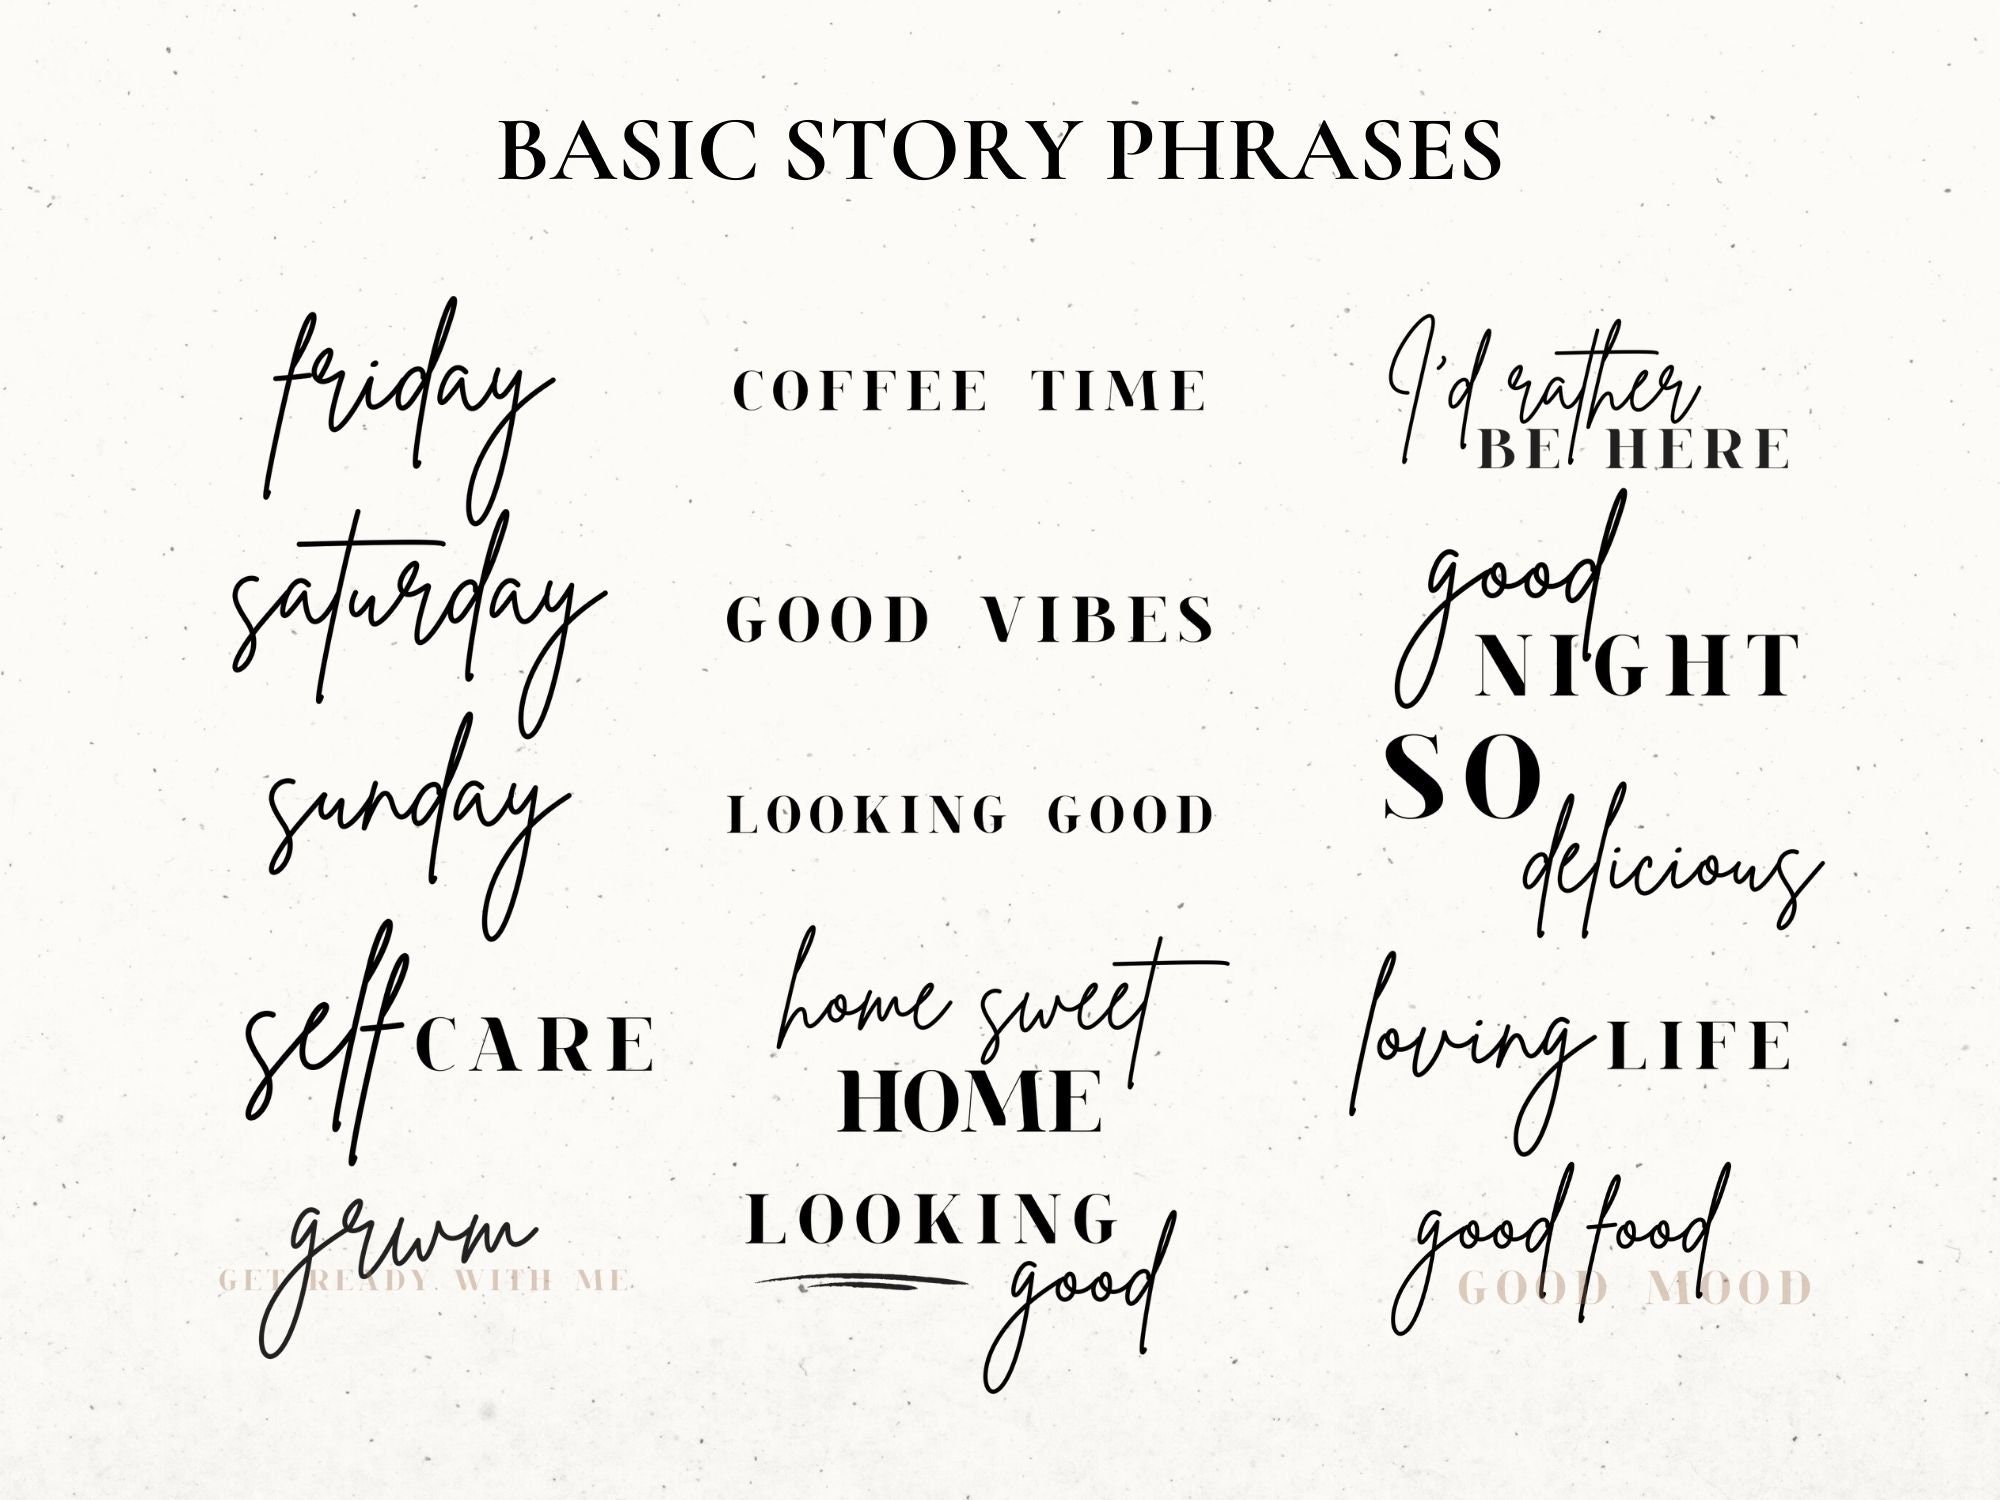 BASIC STORY PHRASES
friday
saturday
sunday
self CARE
grwm
GET READY WITH ME
COFFEE TIME
GOOD VIBES
LOOKING GOOD
home sweet
HOME
LOOKING
good
I'd rather
BE HERE
good
NIGHT
SO
delicious
loving LIFE
good food
GOOD MOOD